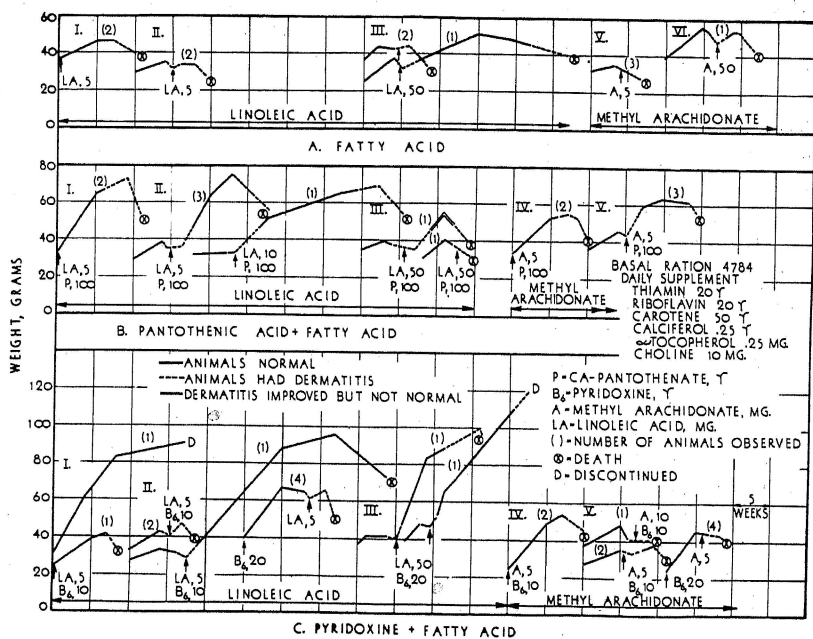 WEIGHT, GRAMS
60
40
20
0
I. (2) II. (2) III. (2) (1) V. (3) VI. (1)
LA, 5
LA, 5
LA, 50
A, 5
A, 50
LINOLEIC ACID
METHYL ARACHIDONATE
A. FATTY ACID
80
60
40
20
0
I. (2) II. (3) (1) III. (1) (1) IV. (2) V. (3)
LA, 5
P, 100
LA, 5
P, 100
LA, 10
P, 100
LA, 50
P, 100
LA, 50
P, 100
A, 5
P, 100
A, 5
P, 100
LINOLEIC ACID
METHYL
ARACHIDONATE
BASAL RATION 4784
DAILY SUPPLEMENT
THIAMIN 20 γ
RIBOFLAVIN 20 γ
CAROTENE 50 γ
CALCIFEROL .25 γ
∝TOCOPHEROL .25 MG.
CHOLINE 10 MG.
B. PANTOTHENIC ACID + FATTY ACID
ANIMALS NORMAL
ANIMALS HAD DERMATITIS
DERMATITIS IMPROVED BUT NOT NORMAL
P=CA-PANTOTHENATE, γ
B6=PYRIDOXINE, γ
A=METHYL ARACHIDONATE, MG.
LA=LINOLEIC ACID, MG.
( )=NUMBER OF ANIMALS OBSERVED
⊗=DEATH
D=DISCONTINUED
120
100
80
60
40
20
0
I. (1) D
(1)
II. (2)
LA, 5
B6, 10
(1)
(4)
LA, 5
III. (1) (1) D
IV. (2) V. (1)
A, 10
B6, 10
(2)
(4)
5
WEEKS
LA, 5
B6, 10
LA, 5
B6, 10
B6, 20
LA, 50
B6, 20
A, 5
B6, 10
A, 5
B6, 10
B6, 20
A, 5
LINOLEIC ACID
METHYL ARACHIDONATE
C. PYRIDOXINE + FATTY ACID